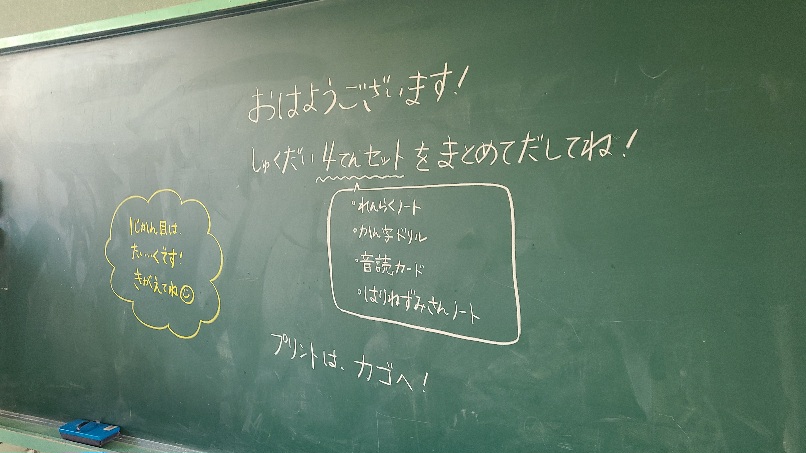 おはようございます！
しゅくだい4てんセットをまとめてだしてね！
・れんらくノート
・かん字ドリル
・音読カード
・はりねずみさんノート
プリントは、カゴへ！
1じかん目は
たいいくです!
きがえてね